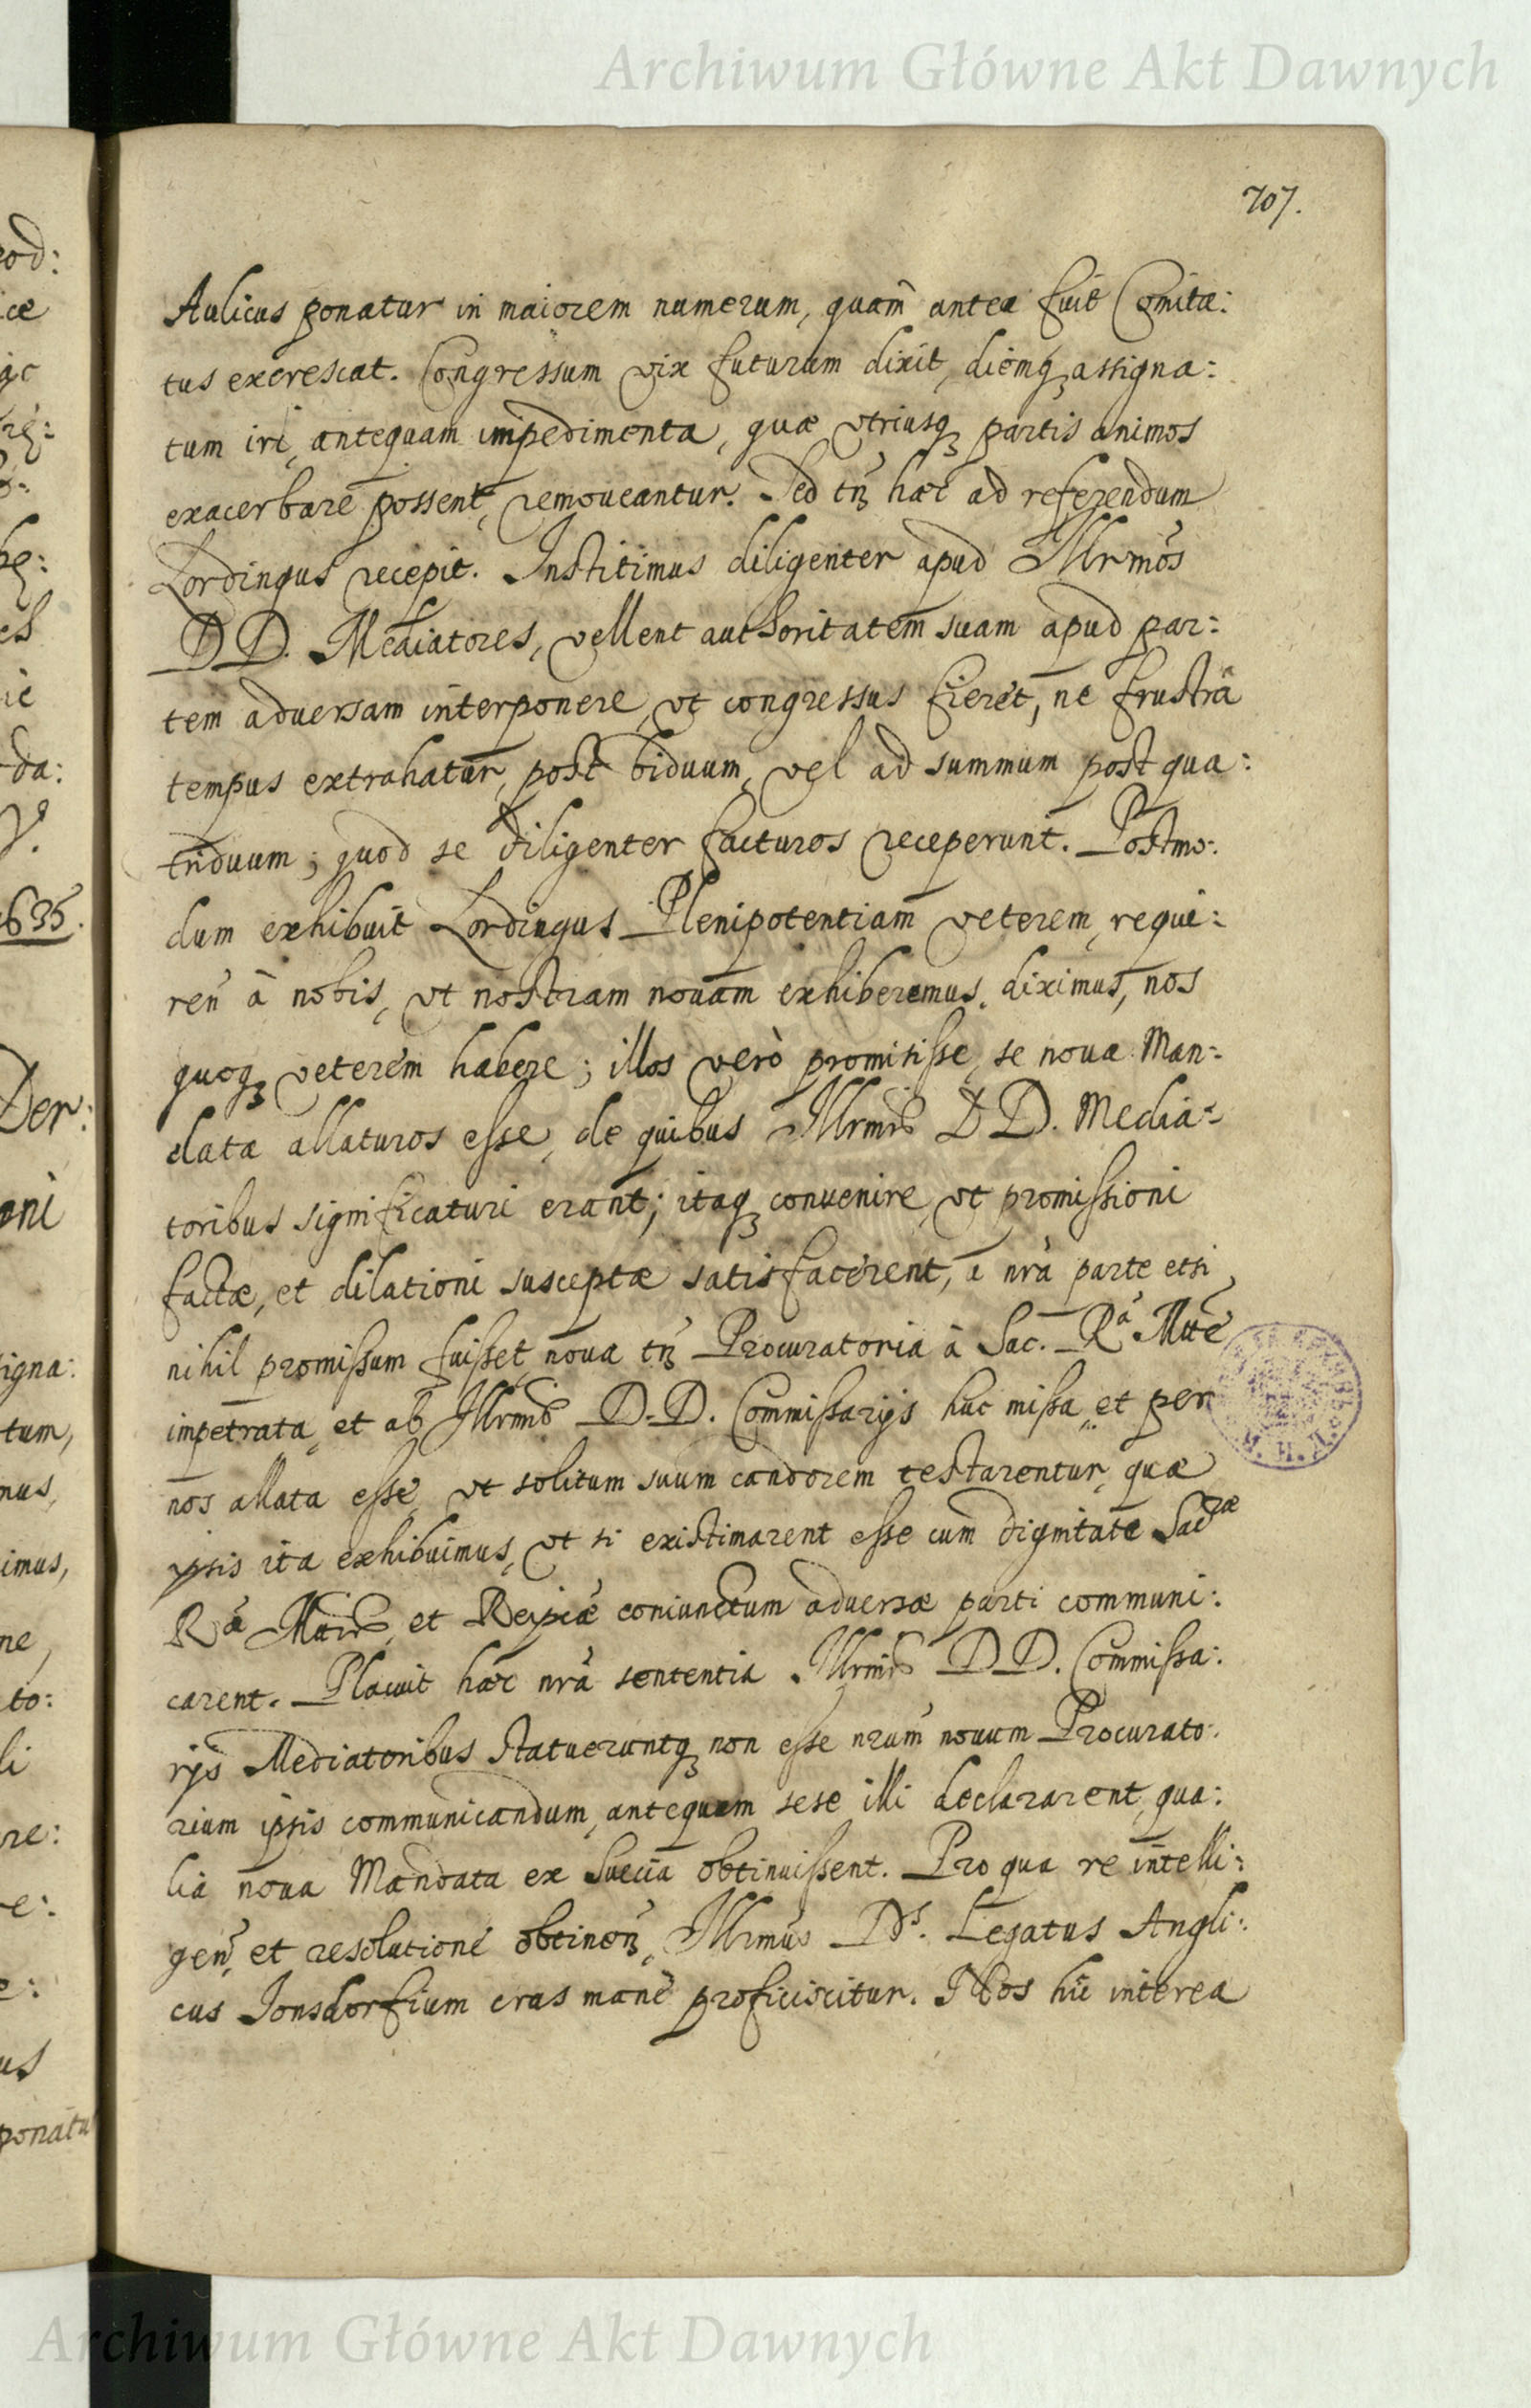 Archiwum Główne Akt Dawnych
707.
Aulicus ponatur in maiorem numerum, quam̃ antea fuit Comita:
tus excrescat. Congressum vix futurum dixit, diemq₃ assigna:
tum iri, antequam impedimenta, quæ vtriusq₃ partis animos
exacerbare possent, remoueantur. Sed tñ hæc ad referendum
Lordingus recepit. Institimus diligenter apud Illrmos
DD. Mediatores, vellent authoritatem suam apud par:
tem aduersam interponere, vt congressus fieret, ne frustrà
tempus extrahatur, post biduum, vel ad summum post qua:
triduum; quod se diligenter facturos receperunt. Postmo:
dum exhibuit Lordingus Plenipotentiam veterem, requi:
reñ à nobis, vt nostram nouam exhiberemus. diximus, nos
quoq₃ veterem habere; illos verò promisisse, se noua Man:
data allaturos esse, de quibus Illrmis DD. Media:
toribus significaturi erant; itaq₃ conuenire, vt promissioni
factæ, et dilationi susceptæ satisfacerent, à nrã parte etsi
nihil promissum fuisset, noua tñ Procuratoria à Sac. Rã Mtte
impetrata, et ab Illrmis D.D. Commissarijs huc missa, et per
nos allata esse, vt solitum suum candorem testarentur, quæ
ipsis ita exhibuimus, vt si existimarent esse cum dignitate Sacræ
Ræ Mttis, et Reipcæ coniunctum aduersæ parti communi:
carent. Placuit hæc nrã sententia Illrmis DD. Commissa:
rijs Mediatoribus statueruntq₃ non esse nrum̃ nouum Procurato:
rium ipsis communicandum, antequam sese illi declararent, qua:
lia noua Mandata ex Suecia obtinuissent. Pro qua re intelli:
geñ, et resolutione obtineñ, Illrmus Ds. Legatus Angli:
cus Ionsdorfium cras manè proficiscitur. Nos hic interea
Archiwum Główne Akt Dawnych